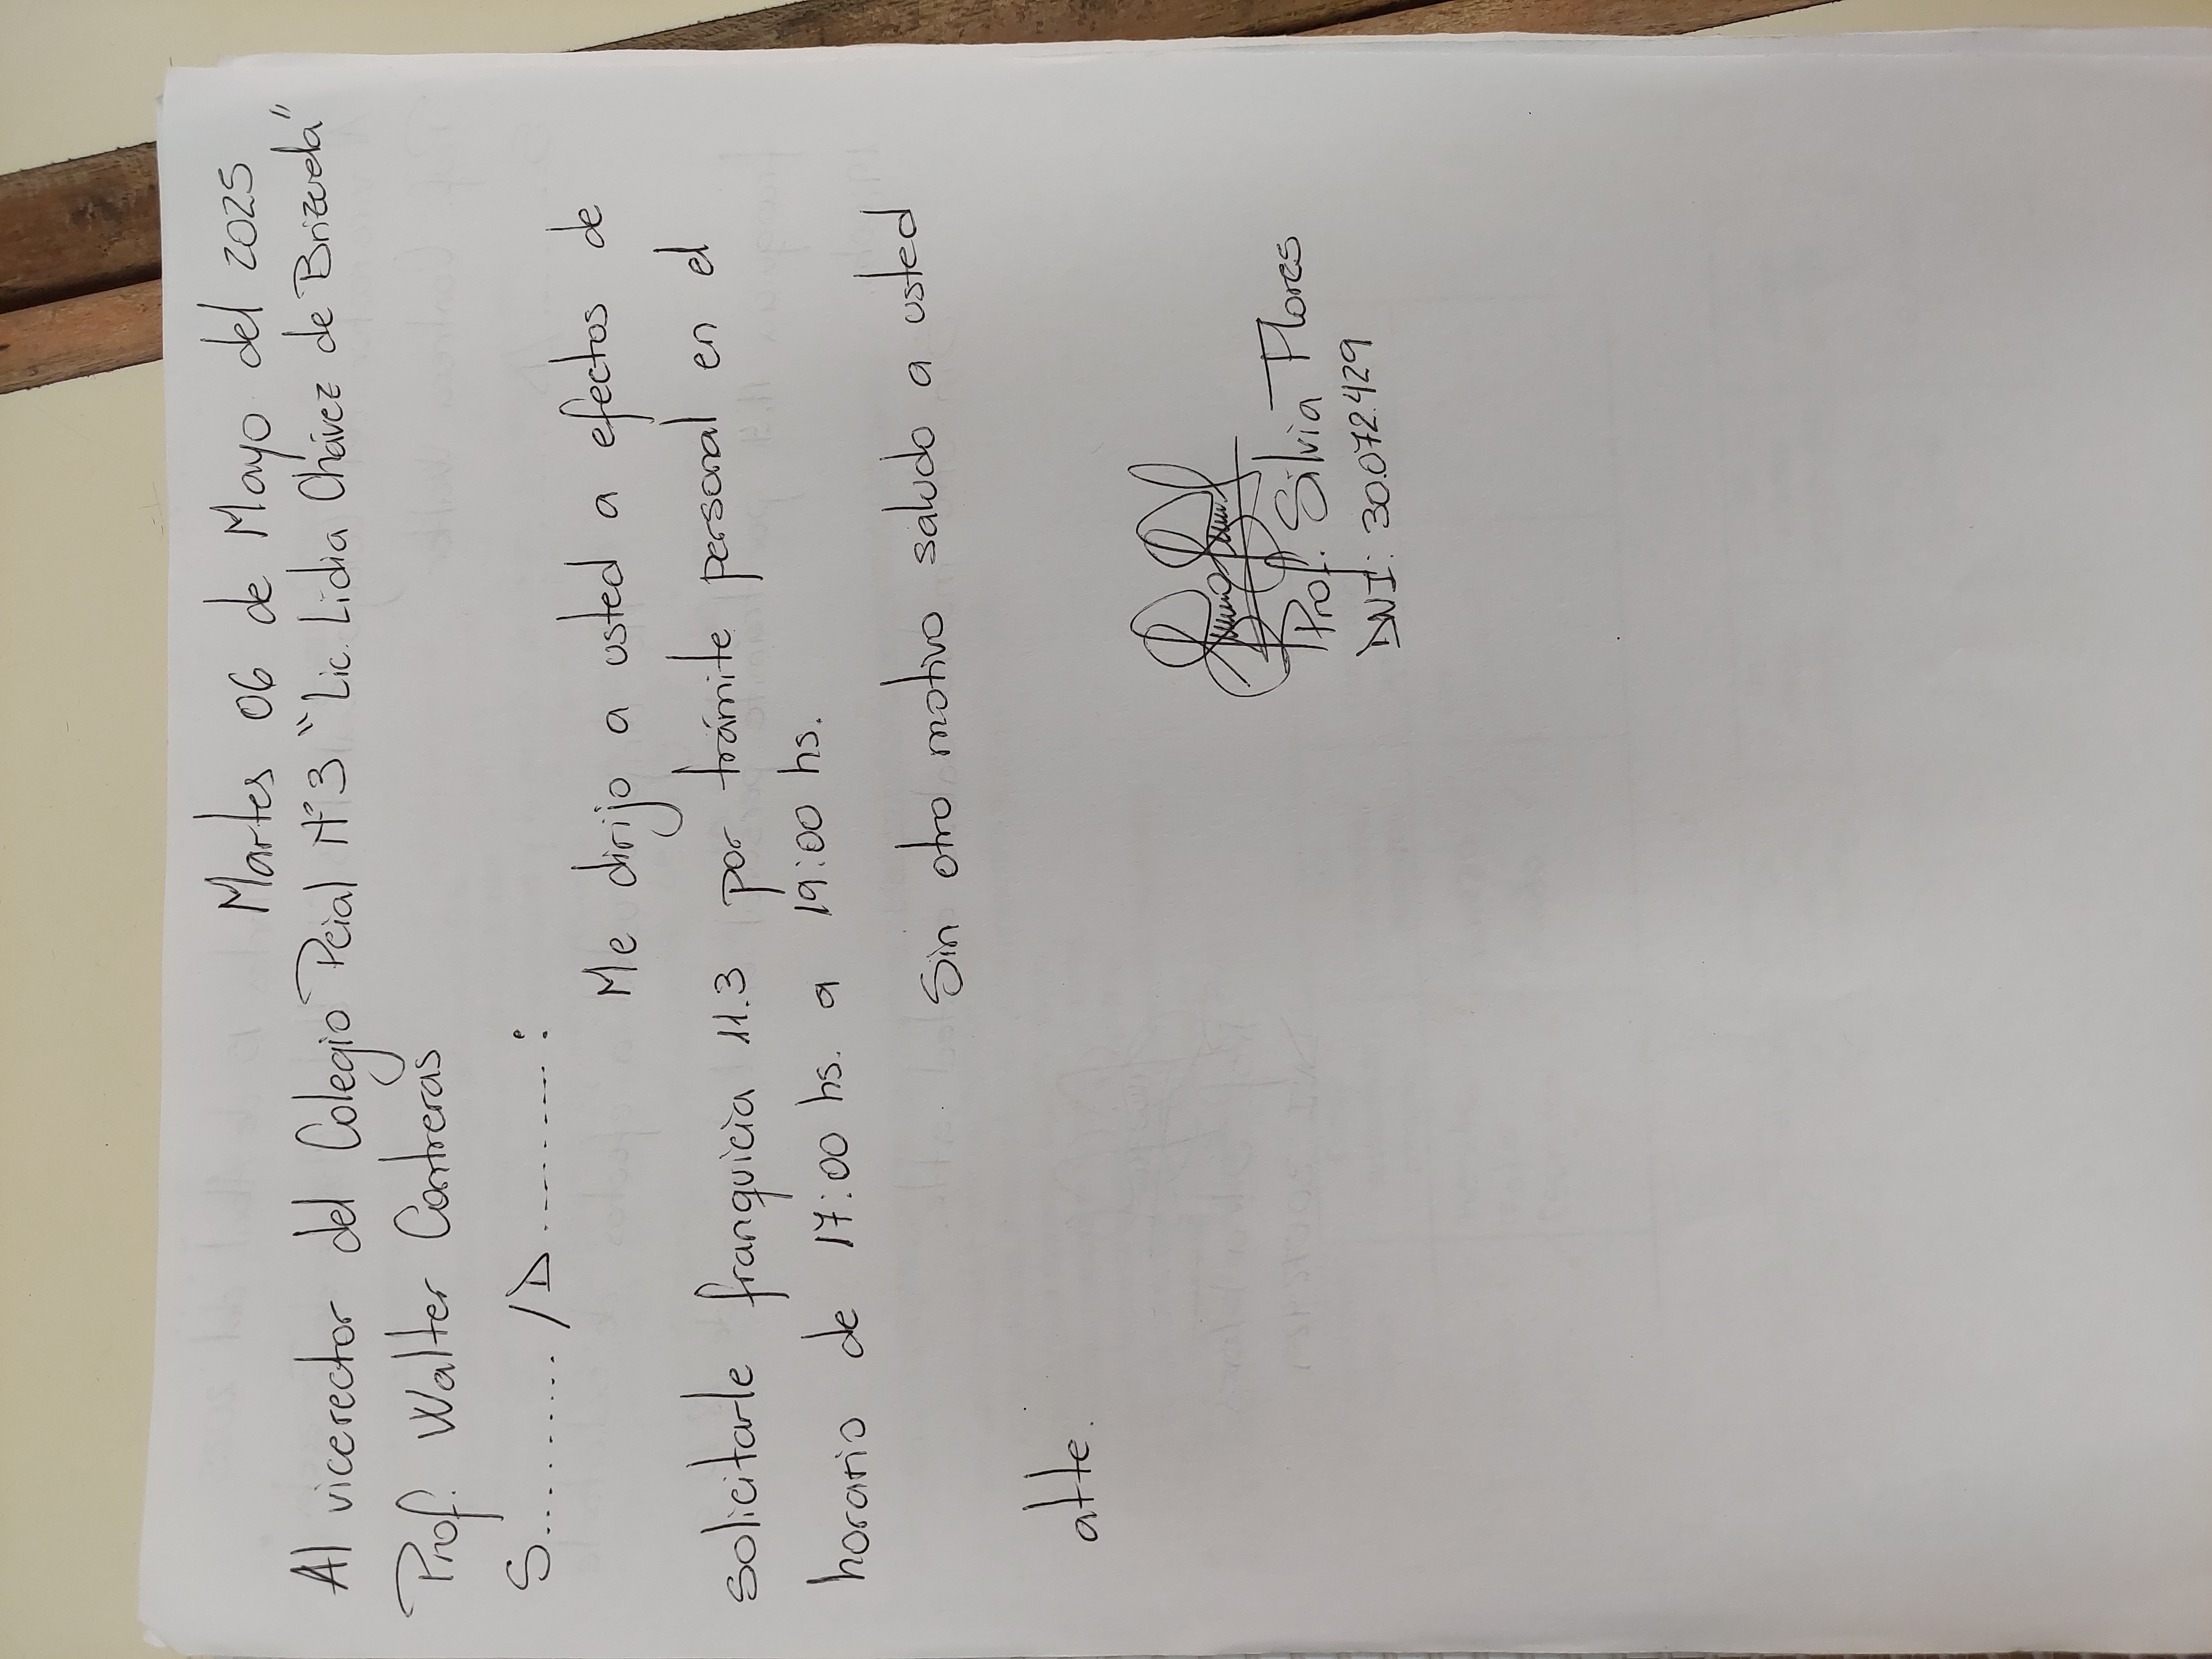 Martes 06 de Mayo del 2025
Al vicerector del Colegio Pcial N°3 "Lic. Lidia Chávez de Brizuela"
Prof. Walter Contreras
S........../D..........:
Me dirijo a usted a efectos de
solicitarle franquicia 11.3 por trámite personal en el
horario de 17:00 hs. a 19:00 hs.
Sin otro motivo saludo a usted
atte.
Prof. Silvia Flores
DNI: 30.072.429